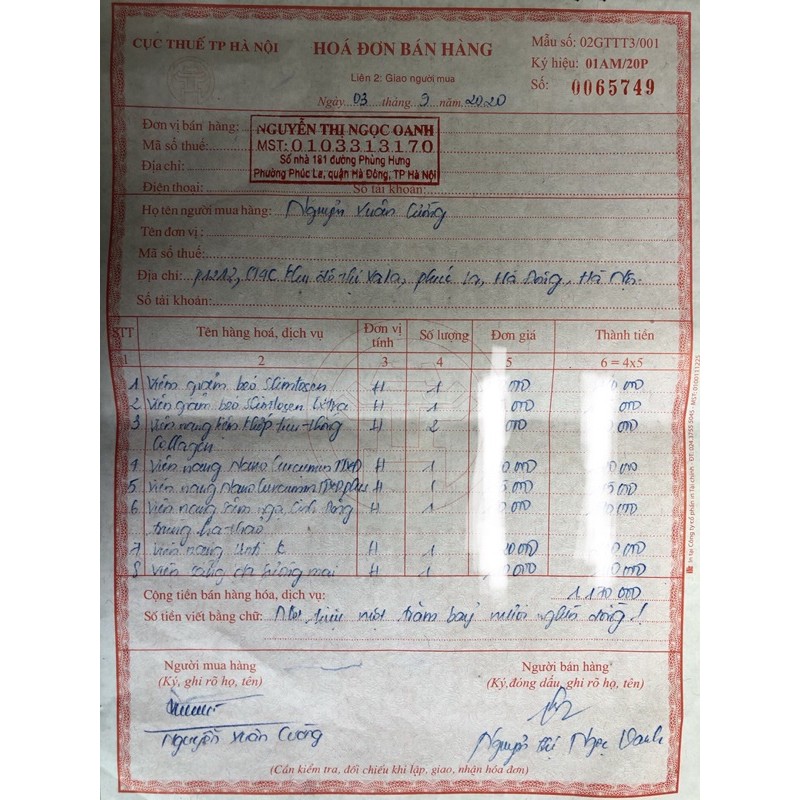 CỤC THUẾ TP HÀ NỘI
HOÁ ĐƠN BÁN HÀNG
Mẫu số: 02GTTT3/001
Liên 2: Giao người mua
Ký hiệu: 01AM/20P
Số: 0065749
Ngày 03 tháng 9 năm 2020
Đơn vị bán hàng:
Mã số thuế:
Địa chỉ:
Điện thoại: Số tài khoản:
NGUYỄN THỊ NGỌC OANH
MST: 0103313170
Số nhà 181 đường Phùng Hưng
Phường Phúc La, quận Hà Đông, TP Hà Nội
Họ tên người mua hàng: Nguyễn Xuân Cường
Tên đơn vị:
Mã số thuế:
Địa chỉ: P1212, khu đô thị Xala, phúc la, Hà Đông, Hà Nội
Số tài khoản:
STT Tên hàng hoá, dịch vụ Đơn vị tính Số lượng Đơn giá Thành tiền
1 2 3 4 5 6 = 4x5
1 Viên giảm béo Slimtosen H 1 000 000
2 Viên giảm béo Slimtosen Extra H 1 000 000
3 Viên nang H 2 000 000
Collagen
4 Viên nang Nano Curcumin H 1 000 000
5 Viên nang Nano Curcumin plus H 1 5 000 5 000
6 Viên nang sâm nga, linh H 1 000 000
trùng hạ thảo
7 Viên nang H 1 000 000
8 Viên H 1 000 000
Cộng tiền bán hàng hóa, dịch vụ: 1.170 000
Số tiền viết bằng chữ: Một triệu một trăm bảy mươi nghìn đồng!
Người mua hàng
(Ký, ghi rõ họ, tên)
Người bán hàng
(Ký, đóng dấu, ghi rõ họ, tên)
Nguyễn Xuân Cường
Nguyễn Thị Ngọc Oanh
(Cần kiểm tra, đối chiếu khi lập, giao, nhận hóa đơn)